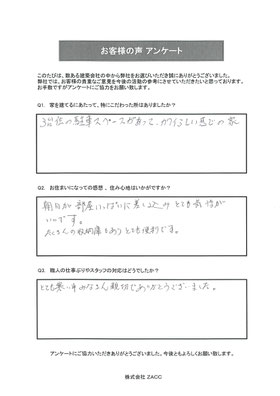 お客様の声 アンケート
このたびは、数ある建築会社の中から弊社をお選びいただき誠にありがとうございました。
弊社では、お客様の貴重なご意見を今後の活動などの参考にさせていただきたいと思っております。
お手数ですがアンケートにご協力をお願い致します。
Q1. 家を建てるにあたって、特にこだわった所はありましたか?
3台位の駐車スペースがあって、かわいらしい感じの家
Q2. お住まいになっての感想、住み心地はいかがですか?
朝日が部屋いっぱいに差しこみ とても気持が
いいです。
たくさんの収納庫もあり とても便利です。
Q3. 職人の仕事ぶりやスタッフの対応はどうでしたか?
とても寒い中 みなさん親切でありがとうございました。
アンケートにご協力いただきありがとうございました。今後ともよろしくお願い致します。
株式会社 ZACC